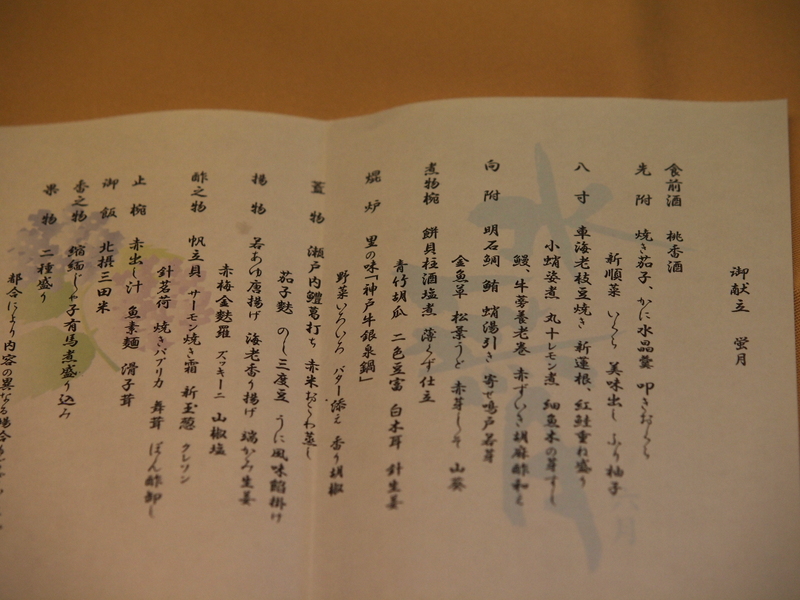 御献立　蛍月
食前酒　桃香酒
先附　焼き茄子、かに水晶羹　叩きおくら
新順菜　いくら　美味出し　ふり柚子
八寸　車海老枝豆焼き　新蓮根、紅鮭重ね盛り
小蛸姿煮　丸十レモン煮　細魚木の芽すし
鰻、牛蒡養老巻　赤ずいき胡麻酢和え
向附　明石鯛　鮪　蛸湯引き　寄せ鳴戸若芽
金魚草　松葉うど　赤芽しそ　山葵
煮物椀　餅貝柱酒塩煮　薄くず仕立
青竹胡瓜　二色豆富　白木耳　針生姜
焜炉　里の味「神戸牛銀泉鍋」
野菜いろいろ　バター添え　香り胡椒
蓋物　瀬戸内鱧葛打ち　赤米おこわ蒸し
茄子麩　のし三度豆　うに風味餡掛け
揚物　若あゆ唐揚げ　海老香り揚げ　端かみ生姜
赤梅金麩羅　ズッキーニ　山椒塩
酢之物　帆立貝　サーモン焼き霜　新玉葱　クレソン
針茗荷　焼きパプリカ　舞茸　ぽん酢卸し
止椀　赤出し汁　魚素麺　滑子茸
御飯　北摂三田米
香之物　縮緬じゃ子有馬煮盛り込み
果物　二種盛り
都合により内容の異なる場合も
水無月
六月